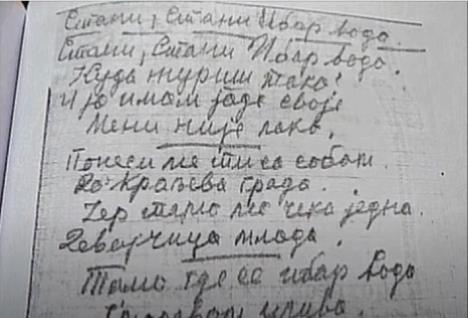 Стани, Стани Ибар водо.
Стани, Стани Ибар водо.
Куда журиш тако!
И ја имам јаде своје
Мени није лако,
Понеси ме ти са собом
До Краљева града.
Јер тамо ме чека једна.
Девојчица млада.
Тамо где се ибар вода